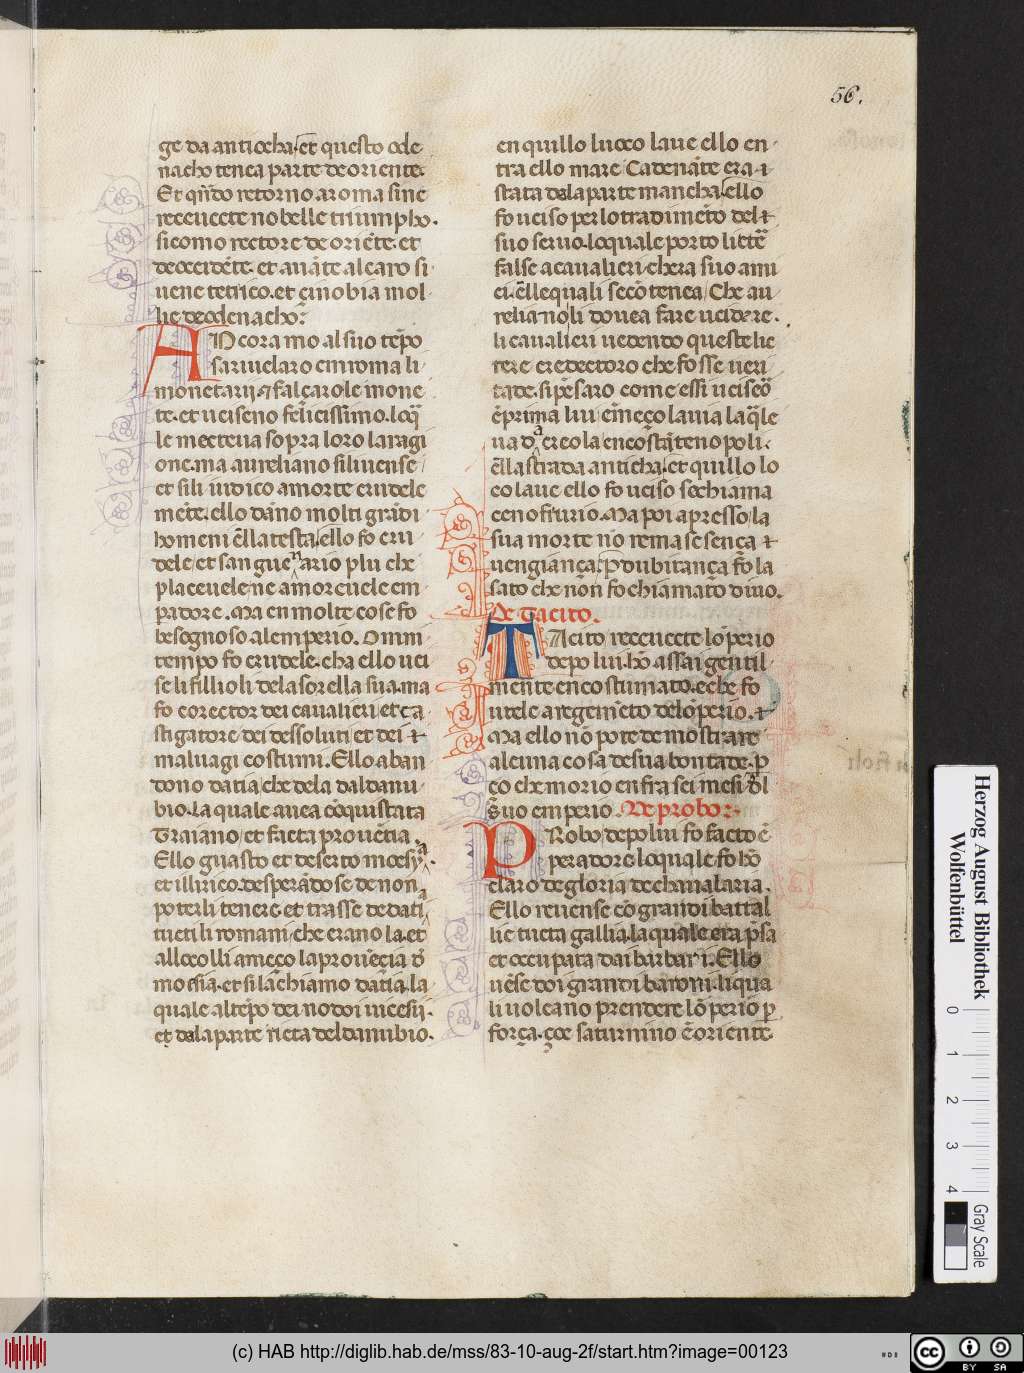 56.
ge da antiocha. et questo ode
nacho tenea parte de oriente.
Et qñdo retorno a roma si ne
receuecte nobelle triumpho.
sicomo rectore de oriẽte. et
de occidẽte. et auãte al caro si
uene tetrico. et cinobia mol
lie de odenacho.
ANcora mo al suo tẽpo
sariuelaro em roma li
monetarij. falçarole mone
te. et uciseno felicissimo. loq̃
le mecteua sopra loro la ragi
one. ma aureliano si li uense
et si li iudico a morte crudele
mẽte. ello dãno molti grãdi
homeni ẽlla testa. ello fo cru
dele. et sanguenario plu che
place uele ne amoreuele em
padore. Ma en molte cose fo
besognoso alemperio. Omni
tempo fo crudele. cha ello uci
se li fillioli dela sorella sua. ma
fo corector dei caualieri et ca
stigatore dei dessoluti et dei
maluagi costumi. Ello aban
dono datia che de la dal danu
bio. la quale auea cõquistata
Traiano et facta prouẽtia.
Ello guasto et deserto moesya
et illirico. desperãdose de non
poterli tenere et trasse de dati
tucti li romani che erano la. et
allocolli a meço la prouẽcia d̃
moesia. et si la chiamo datia. la
quale al tẽpo dei nodoi uicesij.
et dala parte ricta del danubio.
en quillo luoco laue ello en
tra ello mare. Cadenãte era
stata dala parte mancha. ello
fo uciso per lo tradimẽto del
suo seruo. lo quale porto lictẽ
false a caualieri chera suo ami
ci. ẽlle quali se cõtenea Che au
relia noli douea fare ucidere.
li caualieri uedendo queste lic
tere credectoro che fosse ueri
tade. si pẽsaro come essi uciseõ
ẽprima lui ẽmeço la uia laq̃le
ua da creo la en costãtenopoli.
ẽlla strada anticha. et quillo lo
co laue ello fo uciso se chiama
cenofrurio. Ma poi apresso la
sua morte nõ remase sença
uengiança. dubitança fõ la
sato che non fo chiamato diuo.
De Tacito.
TAcito receuecte lõperio
depo lui. hõ assai gentil
mente encostumato. e che fo
utele a regemẽto delõperio.
Ma ello nõ pote demostrare
alcuna cosa de sua bontade. p
ço che morio enfra sei mesi dl
suo emperio. De probo.
PRobo depo lui fo facto ẽ
peradore lo quale fo hõ
claro de gloria de chaualaria.
Ello reuense cõ grandi battal
lie tucta gallia. la quale era p̃sa
et occupata dai barbari. Ello
uẽse doi grandi baroni. li qua
li uoleano prendere lõperio p
força. çoe saturnino ẽ oriente
Herzog August Bibliothek
Wolfenbüttel
0 1 2 3 4
Gray Scale
(c) HAB http://diglib.hab.de/mss/83-10-aug-2f/start.htm?image=00123
cc BY SA